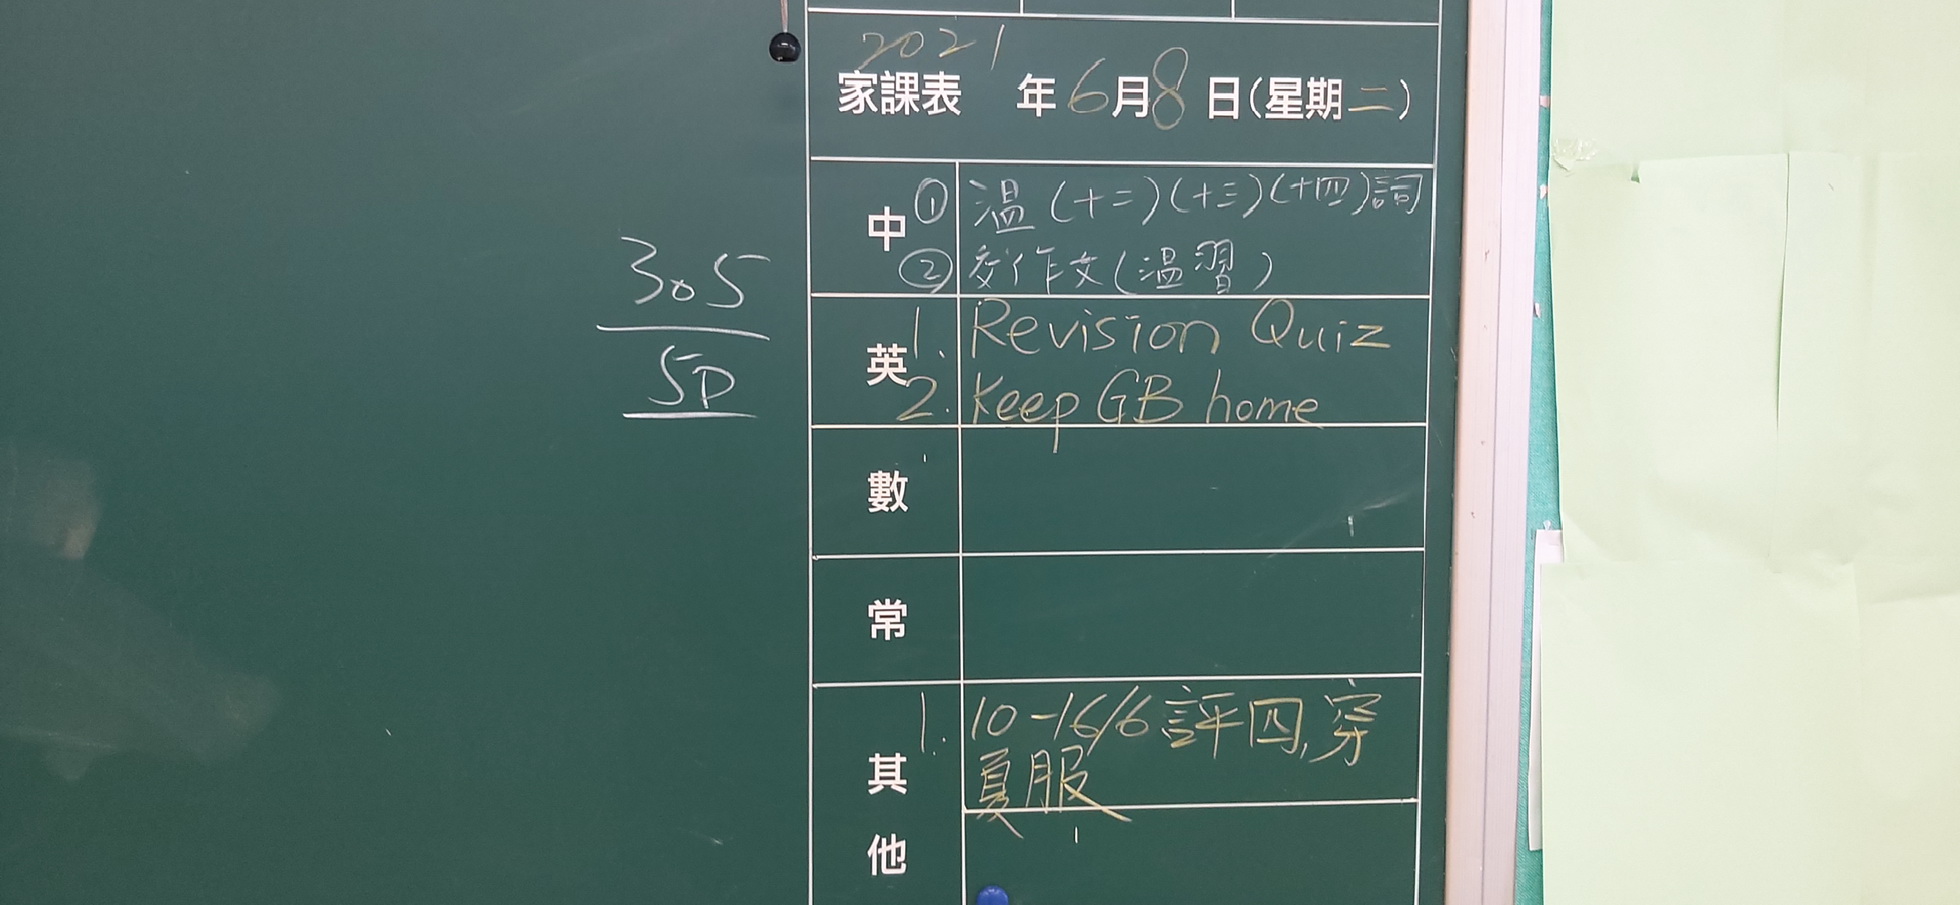 2021
家課表 年6月8日(星期二)
305
5D
中
① 溫(十二)(十三)(十四)詞
② 交作文(溫習)
英
1. Revision Quiz
2. Keep GB home
數
常
其他
1. 10-16/6 評四,穿
夏服